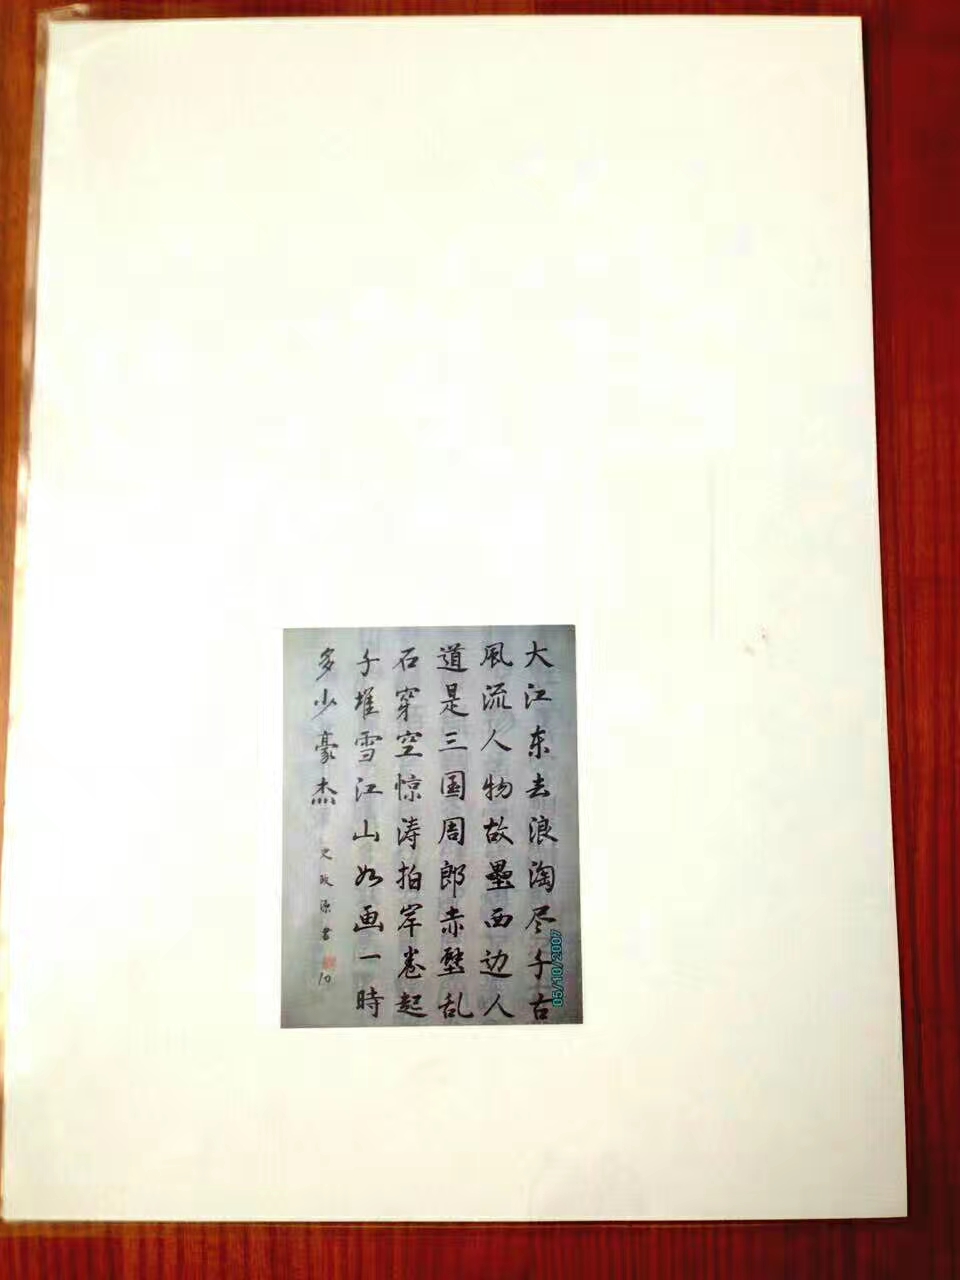 大江东去浪淘尽千古
風流人物故壘西边人
道是三国周郎赤壁乱
石穿空惊涛拍岸卷起
千堆雪江山如画一時
多少豪杰
文政源書
10
05/10/2007